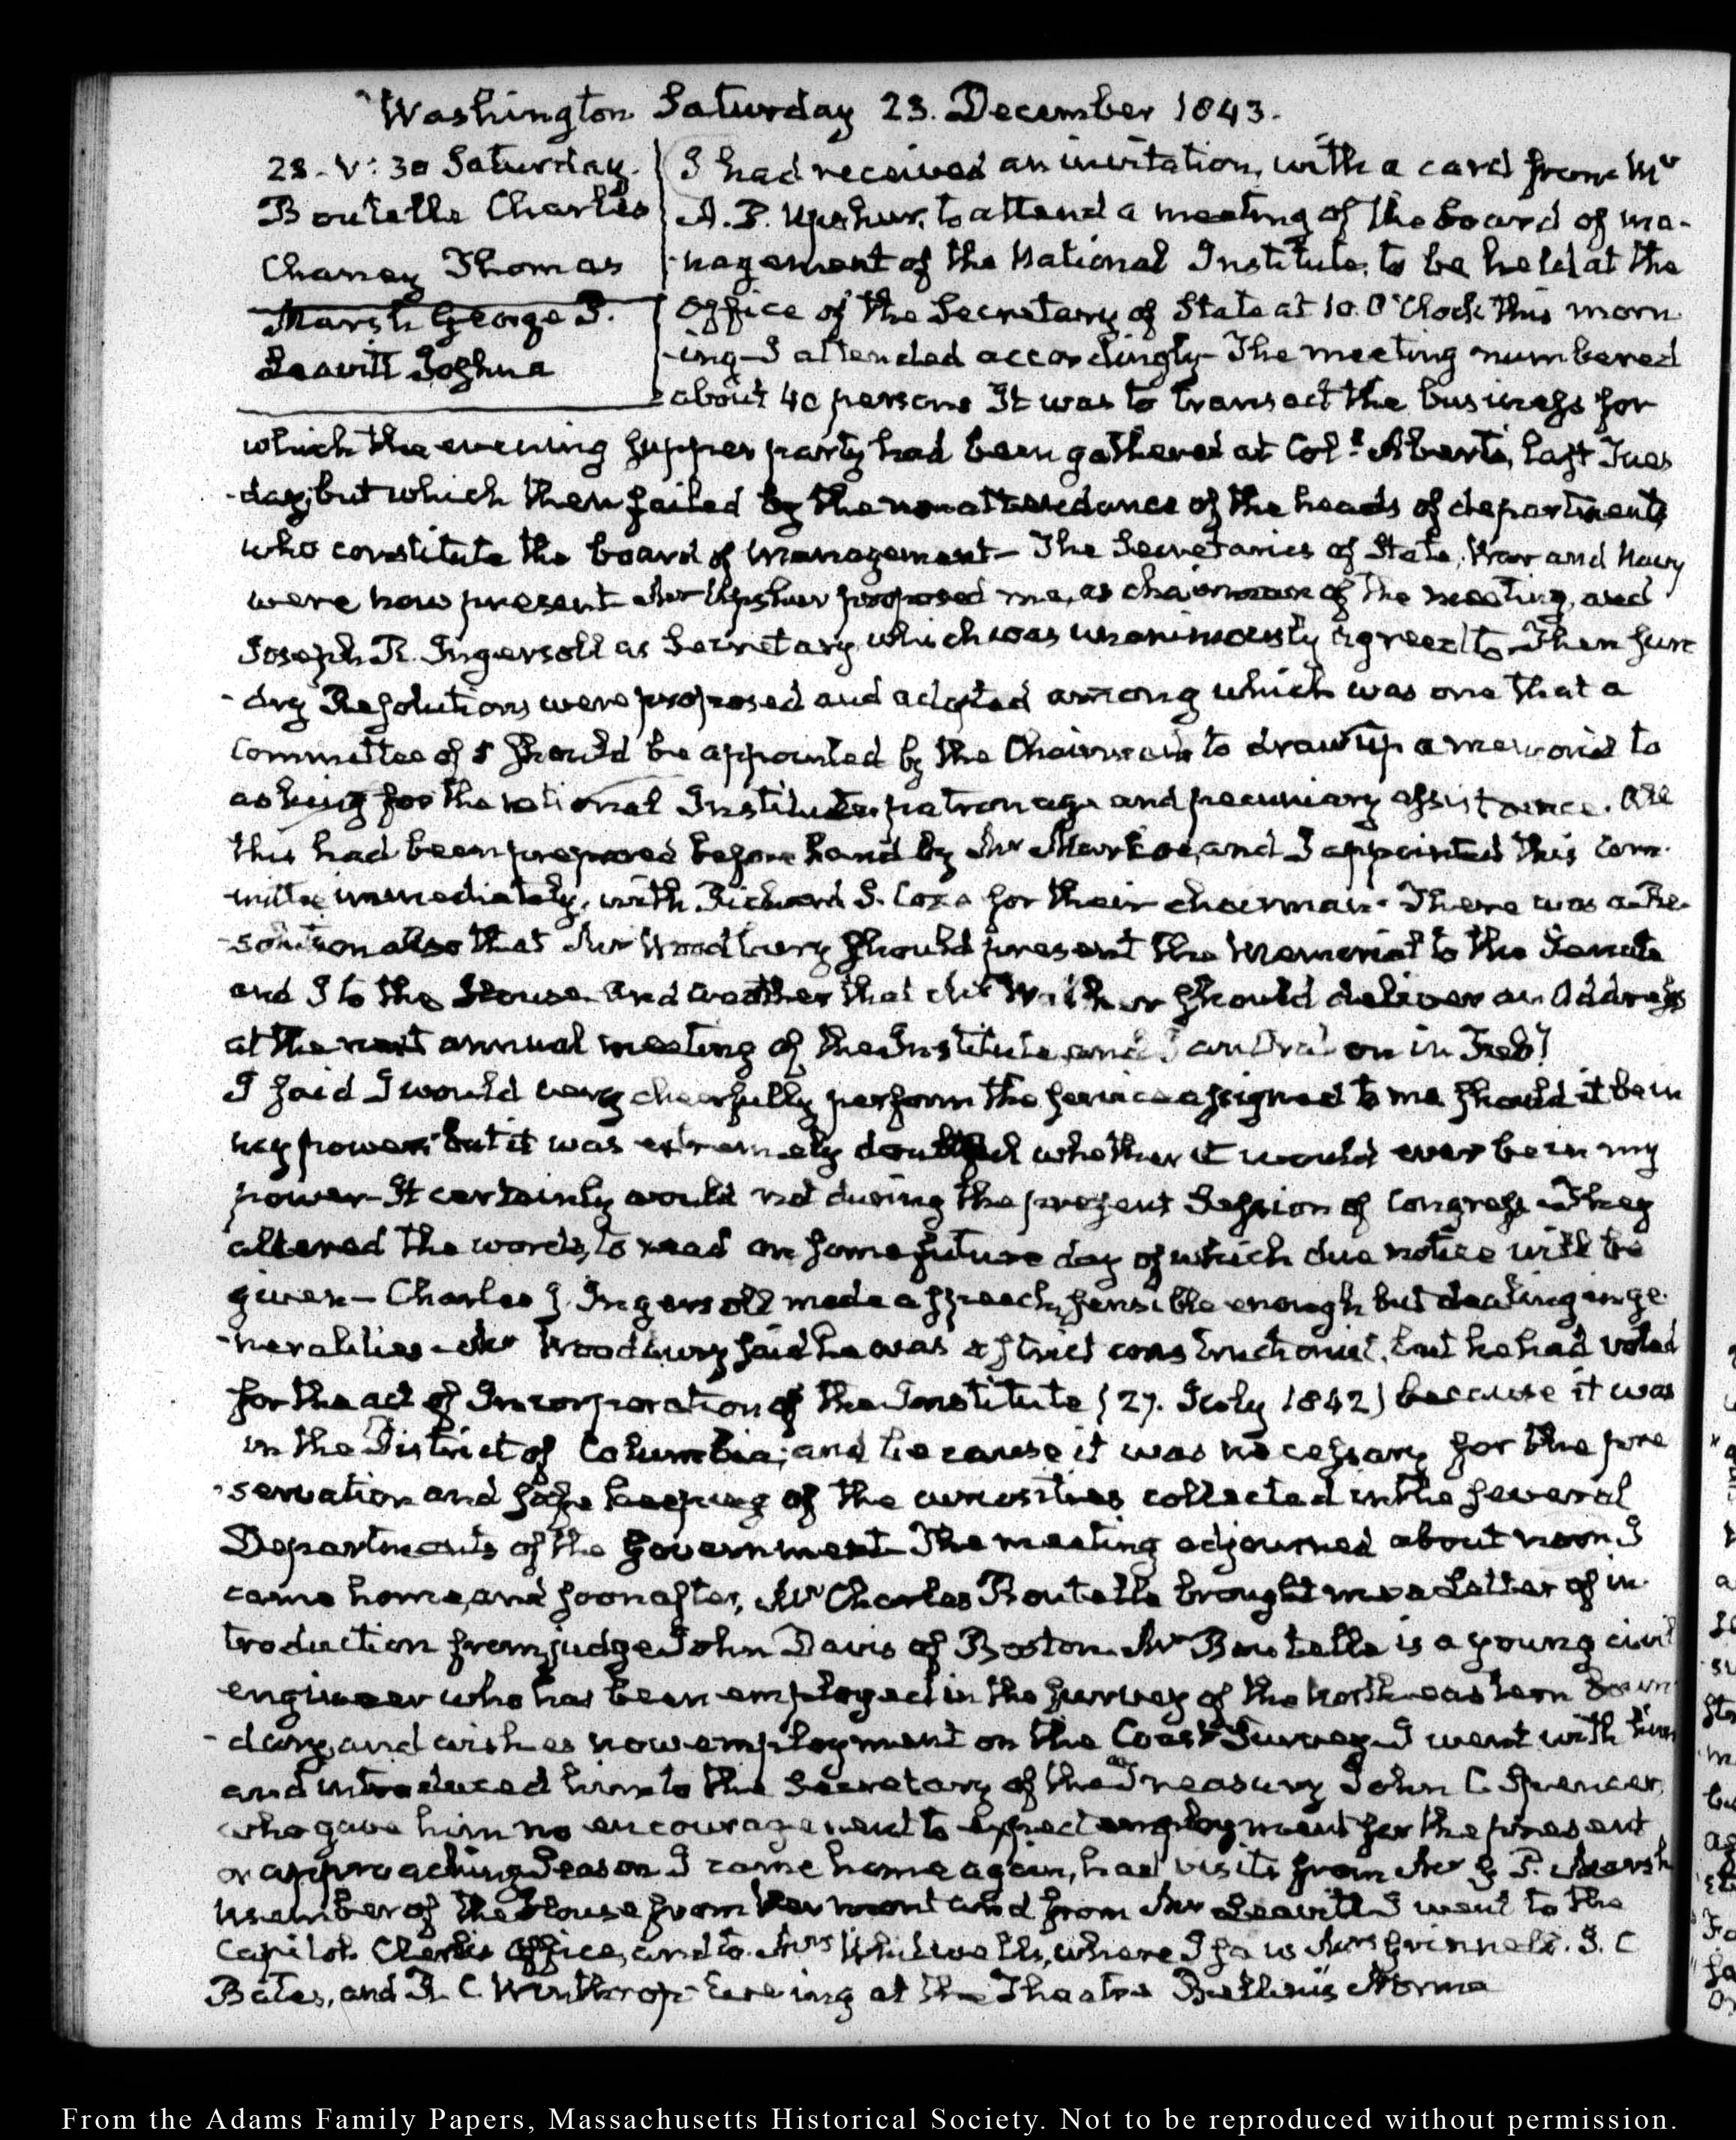 Washington Saturday 23. December 1843.
23. V: 30 Saturday.
Boutelle Charles
Chaney Thomas
Marsh George P.
Leavitt Joshua
I had received an invitation, with a card from Mr
A. P. Upshur, to attend a meeting of the board of ma-
-nagement of the National Institute, to be held at the
Office of the Secretary of State at 10. O'Clock this morn
-ing— I attended accordingly— The meeting numbered
about 40 persons It was to transact the business for
which the evening supper party had been gathered at Coll. Abert's, last Tues
-day; but which then failed by the non attendance of the heads of departments
who constitute the board of management— The Secretaries of State, War and Navy
were now present— Mr Upshur proposed me, as chairman of the meeting, and
Joseph R. Ingersoll as Secretary, which was unanimously agreed to— Then sun
-dry Resolutions were proposed and adopted among which was one that a
Committee of 5 should be appointed by the Chairman to draw up a memorial to
asking for the national Institute, patronage and pecuniary assistance. All
this had been prepared before hand by Mr Markoe, and I appointed this Com-
-mittee immediately, with Richard S. Coxe for their chairman. There was a Re-
-solution also that Mr Woodbury should present the Memorial to the Senate
and I to the House— And another that Mr Walker should deliver an Address
at the next annual meeting of the Institute, and I an Oration in Feby
I said I would very cheerfully perform the service assigned to me should it be in
my power. but it was extremely doubtful whether it would ever be in my
power— It certainly would not during the present Session of Congress— They
altered the words, to read on some future day of which due notice will be
given— Charles J. Ingersoll made a speech, sensible enough but dealing in ge-
-neralities— Mr Woodbury said he was a strict constructionist, but he had voted
for the act of Incorporation of the Institute (27. July 1842) because it was
in the District of Columbia; and because it was necessary for the pre
-servation and safe keeping of the curiosities collected in the several
Departments of the Government— The meeting adjourned about noon I
came home, and soon after, Mr Charles Boutelle brought me a Letter of in-
troduction from judge John Davis of Boston. Mr Boutelle is a young civil
engineer who has been employed in the survey of the North eastern boun
-dary, and wishes now employment on the Coast Survey— I went with him
and introduced him to the Secretary of the Treasury John C. Spencer,
who gave him no encouragement to expect employment for the present
or approaching Season I came home again, had visits from Mr G. P. Marsh
member of the House from Vermont and from Mr Leavitt— I went to the
Capitol. Clerk's Office, and to Mrs Whitwell's, where I saw Mrs Grinnell. I. C
Bates, and R. C. Winthrop— Evening at the Theatre Bellini's Norma
From the Adams Family Papers, Massachusetts Historical Society. Not to be reproduced without permission.